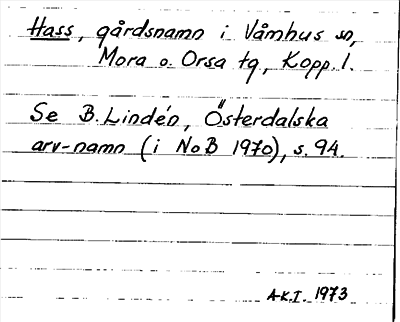 Hass, gårdsnamn i Våmhus sn,
Mora o. Orsa tg, Kopp. l.
Se B. Lindén, Österdalska
arv-namn (i NoB 1970), s. 94.
A.K.I. 1973